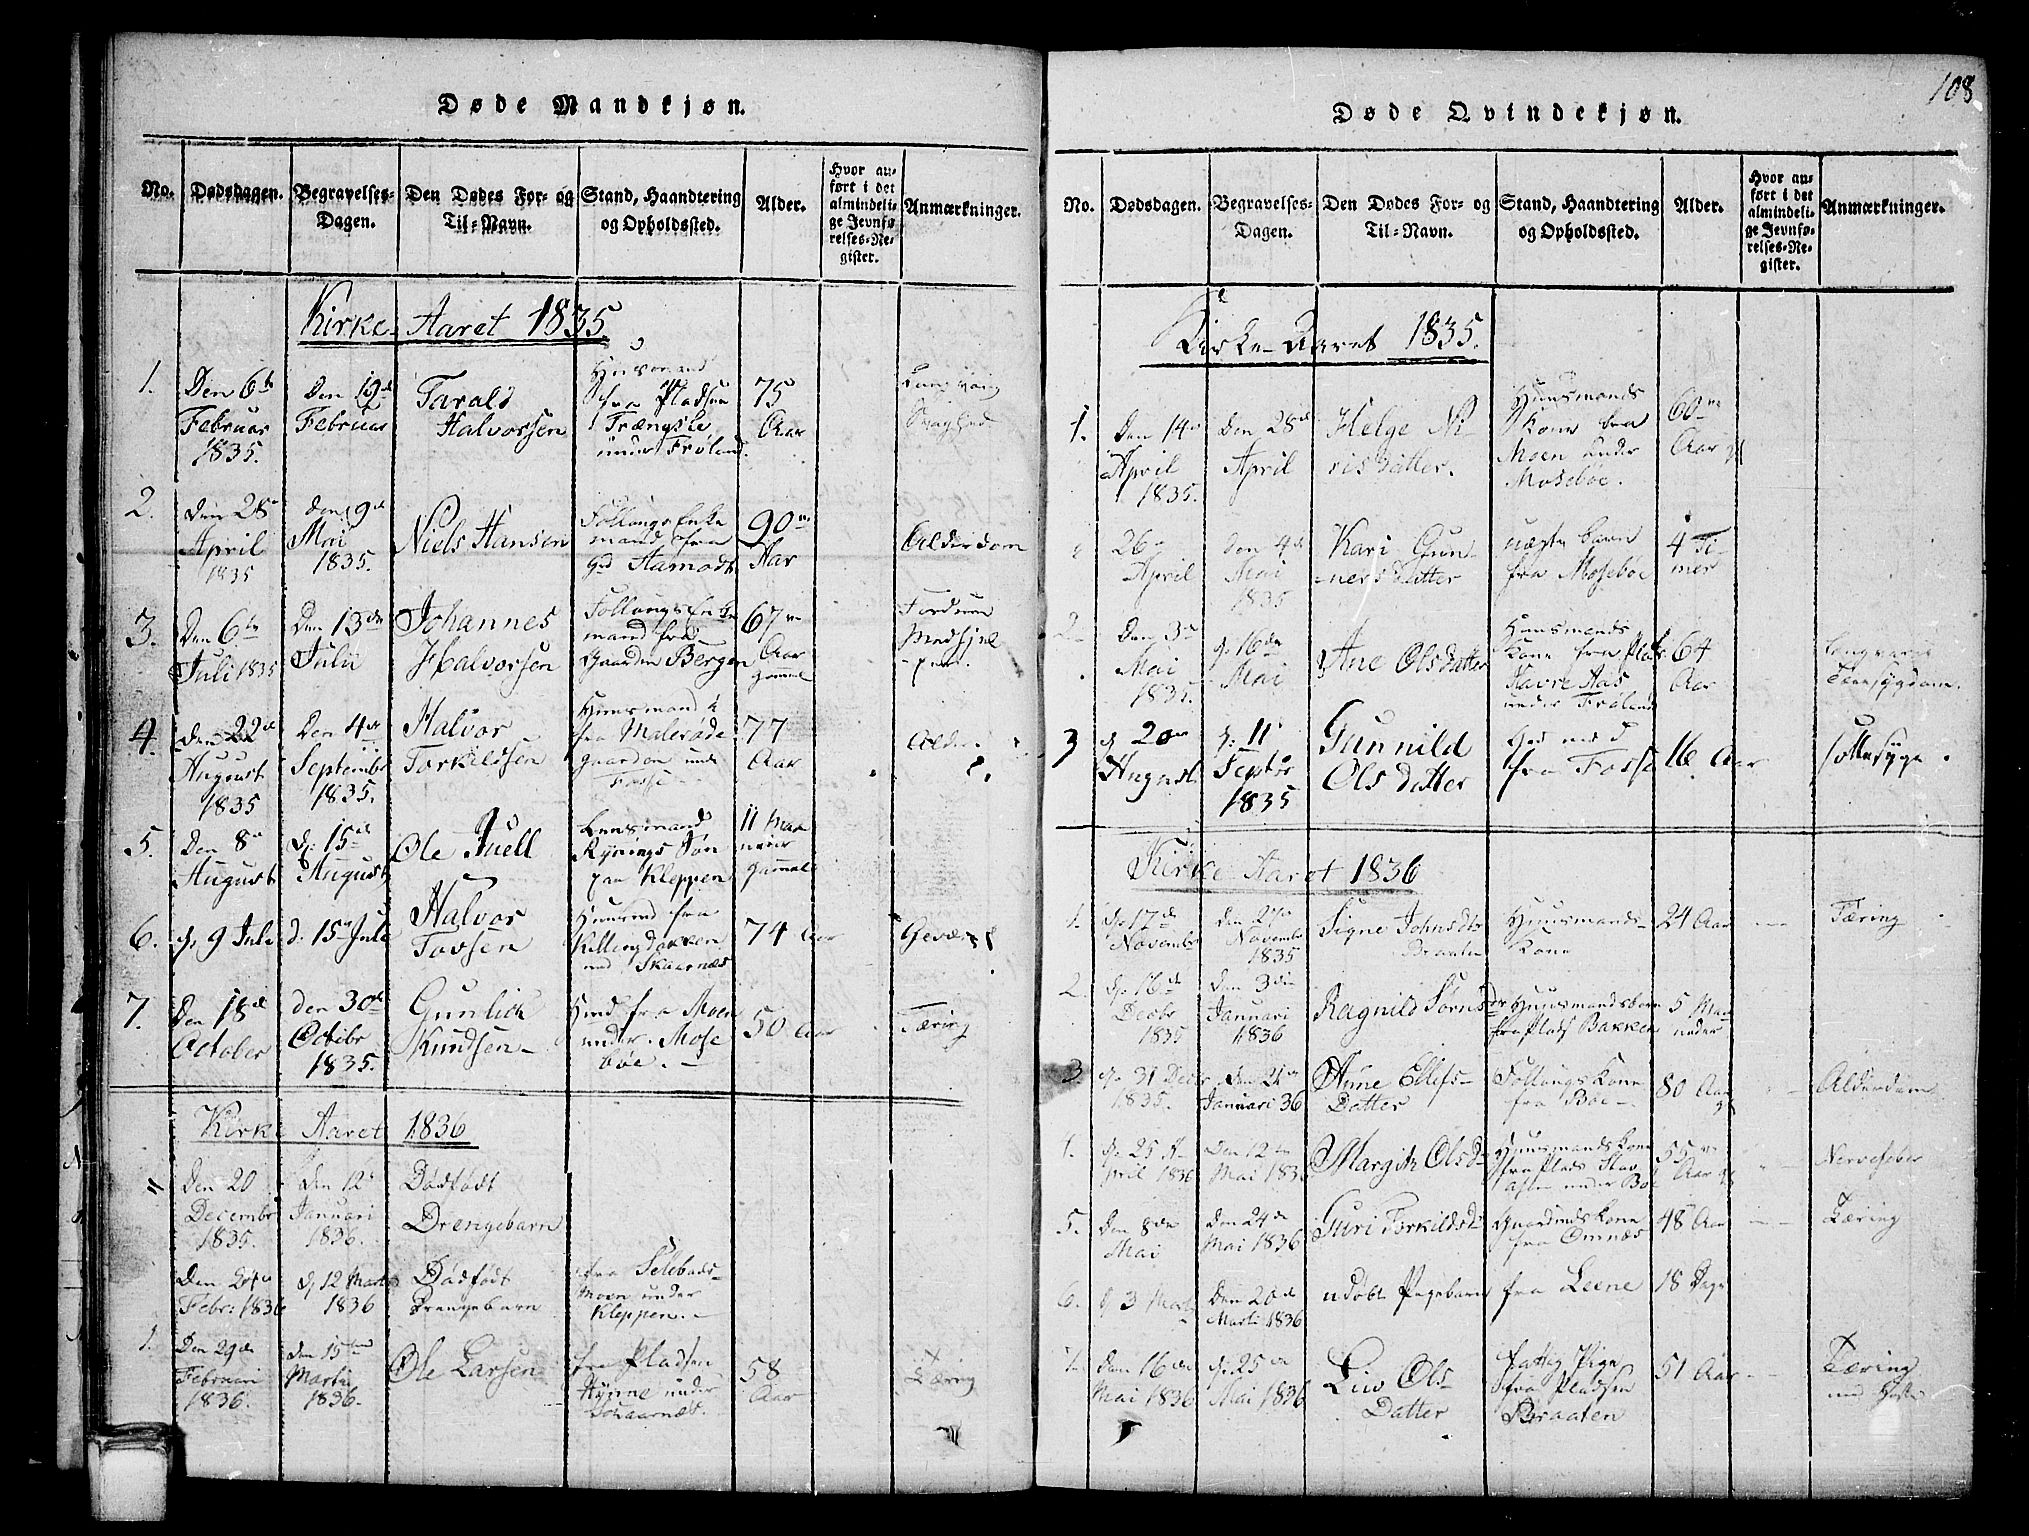 108
Døde Mandkjøn.
No. Dødsdagen. Begravelses-Dagen. Den Dødes For- og Til-Navn. Stand, Haandtering og Opholdssted. Alder. Hvor anført i det almindelige Jevnførelses-Register. Anmærkninger.
Kirke-Aaret 1835
1. Den 6te Februar 1835. Den 19de Februar Tarald Halvorsen Huusmand fra Pladsen Trængsle under Frøland. 75 Aar Langvarig Svaghed
2. Den 28de April 1835 den 9de Mai 1835. Niels Hansen Follougs Enkemand fra Grd Aamodt 90 Aar Alderdom
3. Den 6te Juli 1835 Den 13de Julii Johannes Halvorsen Follougs Enkemand fra Gaarden Bergen 67 Aar gammel Fordum
4. Den 22de August 1835 Den 4de Septembr 1835. Halvor Torkildsen Huusmand fra Malerøde Gaarden under Fosse 77 Aar Alder
5. Den 8de August d. 15de August Ole Juell Lensmand Rynings Søn paa Kleppen 11 Maaneder gammel
6. d. 9 Juli d. 15de Juli Halvor Tovsen Huusmd fra Killingdokken und Skaarnæs 74 Aar
7. Den 18de October den 30de Octobr 1835. Gunlich Knudsen Hmd fra Moen under Mosebøe. 50 Aar Tæring
Kirke Aaret 1836
" Den 20 Decembr 1835. Den 12te Januari 1836. Dødfødt Drengebarn
Den 24de Febr: 1836 d. 12 Marti 1836 Dødfødt Drengebarn fra Selebads-Moen under Kleppen.
1. Den 29de Februari 1836. den 15tend Martii 1836. Ole Larsen fra Pladsen Hynne under Skaarnæs. 58 Aar Tæring
Døde Qvindekjøn.
No. Dødsdagen. Begravelses-Dagen. Den Dødes For- og Til-Navn. Stand, Haandtering og Opholdssted. Alder. Hvor anført i det almindelige Jevnførelses-Register. Anmærkninger.
Kirke-Aaret 1835.
1. Den 14de April 1835. Den 28de April Helge Nirisdatter. Huusmands Kone fra Moen under Mosebøe. 60 Aar gl
" 26de April Den 4de Mai 1835 Kari Gunnersdatter uægte barn fra Mosebøe 4 Timer
2. Den 3de Mai 1835. d. 16de Mai Ane Olsdatter Huusmands Kone fra Plads Havre Aas under Frøland 64 Aar langvarig
3 d. 20de August d. 11 Septbr 1835 Gunnild Olsdatter fra Fosse 16 Aar
Kirke Aaret 1836
1. d. 17de Novembr Den 27de Novembr 1835 Signe Johnsdtr Braaten Huusmands-Kone 24 Aar Tæring
2. d. 16de Decbr 1835 Den 3die Januari 1836 Ragnild Sørensdr Huusmandsbarn fra Plads Bakken 5 Maaneder
3 d. 31 Decbr 1835. Den 21de Januari 36 Anne Ellefs-Datter Follougs Kone fra Bøe 80 Aar gl Alderdom
1. d. 25 April 1836 Den 12te Mai 1836 Margith Olsd Huusmands kone fra Plads under Bøe 55 Aar gl Nervefeber
5. Den 8de Mai Den 24de Mai 1836 Guri Torkildsd Gaardmds Kone fra Omnæs 48 Aar Tæring
6. d. 3 Marti Den 20de Marti 1836 udøbt Pigebarn fra Leene 18 Dage
7. Den 16de Mai 1836 d. 25de Mai 1836 Liv Ols Datter fattig Pige fra Pladsen Braaten 51 Aar Tæring